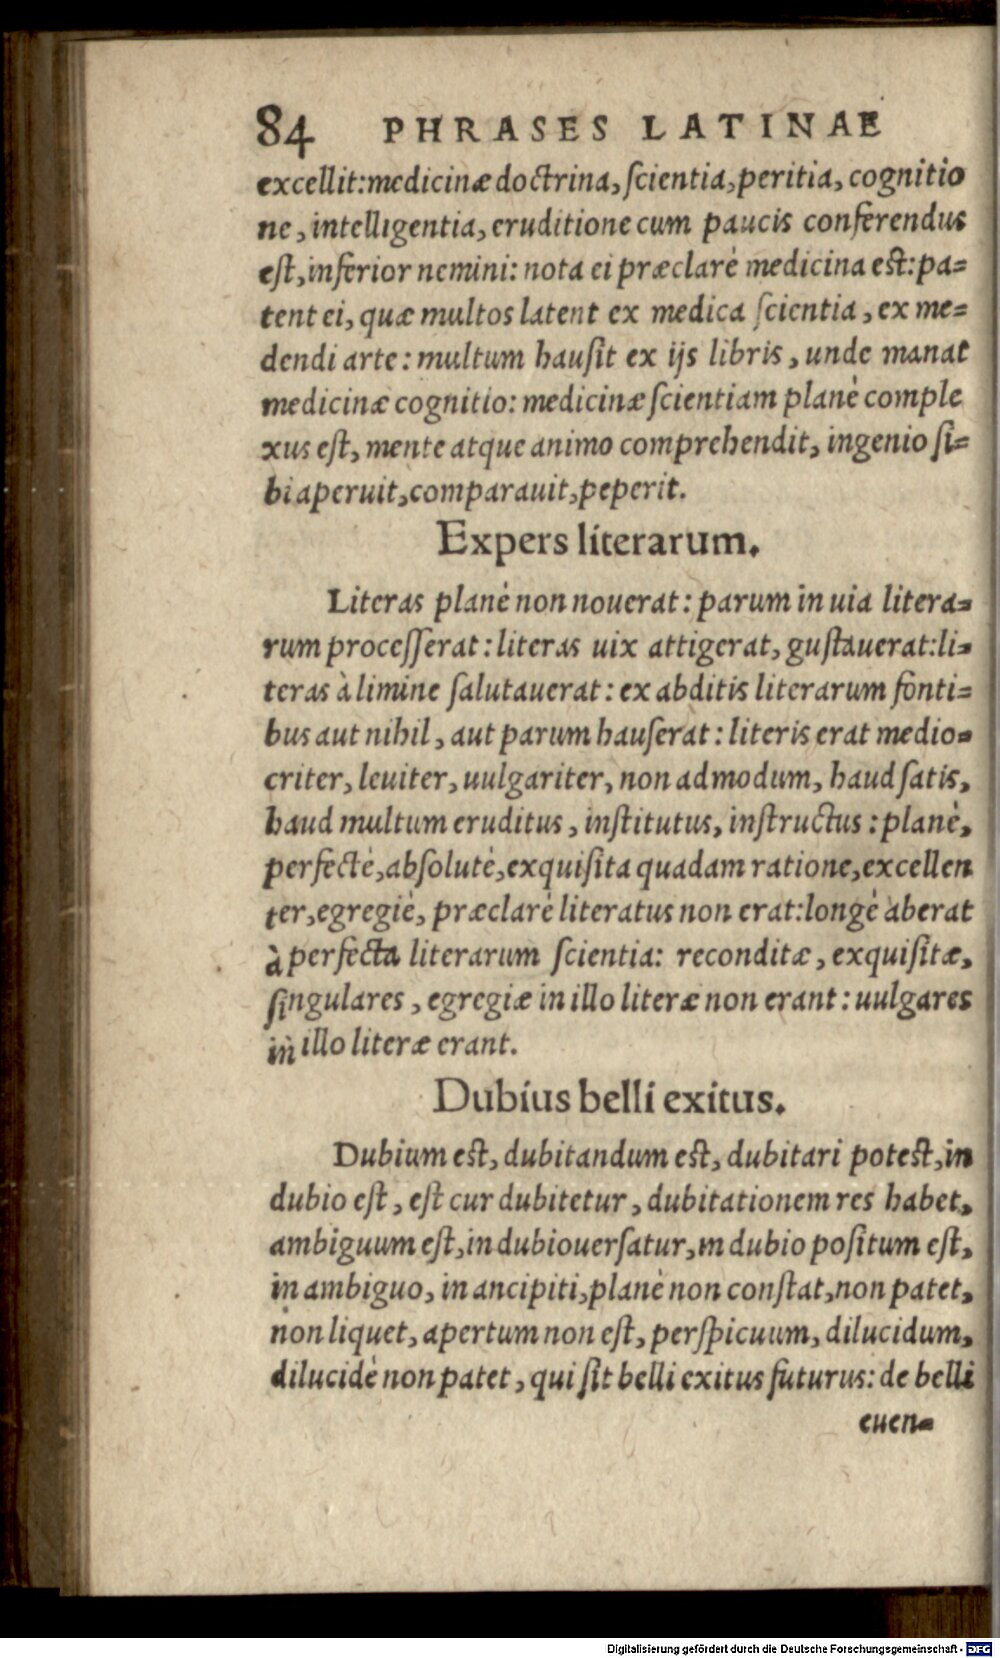 84 PHRASES LATINAE
excellit: medicinæ doctrina, ſcientia, peritia, cognitio
ne, intelligentia, eruditione cum paucis conferendus
eſt, inferior nemini: nota ei præclarè medicina eſt: pa=
tent ei, quæ multos latent ex medica ſcientia, ex me=
dendi arte: multum hauſit ex ijs libris, unde manat
medicinæ cognitio: medicinæ ſcientiam planè comple
xus eſt, mente atque animo comprehendit, ingenio ſi=
bi aperuit, comparauit, peperit.
Expers literarum.
Literas planè non nouerat: parum in uia litera=
rum proceſſerat: literas uix attigerat, guſtauerat: li=
teras à limine ſalutauerat: ex abditis literarum fonti=
bus aut nihil, aut parum hauſerat: literis erat medio=
criter, leuiter, uulgariter, non admodum, haud ſatis,
haud multum eruditus, inſtitutus, inſtructus: planè,
perfectè, abſolutè, exquiſita quadam ratione, excellen
ter, egregiè, præclarè literatus non erat: longè aberat
à perfecta literarum ſcientia: reconditæ, exquiſitæ,
ſingulares, egregiæ in illo literæ non erant: uulgares
in illo literæ erant.
Dubius belli exitus.
Dubium eſt, dubitandum eſt, dubitari poteſt, in
dubio eſt, eſt cur dubitetur, dubitationem res habet,
ambiguum eſt, in dubio uerſatur, in dubio poſitum eſt,
in ambiguo, in ancipiti, planè non conſtat, non patet,
non liquet, apertum non eſt, perſpicuum, dilucidum,
dilucidè non patet, qui ſit belli exitus futurus: de belli
euen=
Digitalisierung gefördert durch die Deutsche Forschungsgemeinschaft - DFG